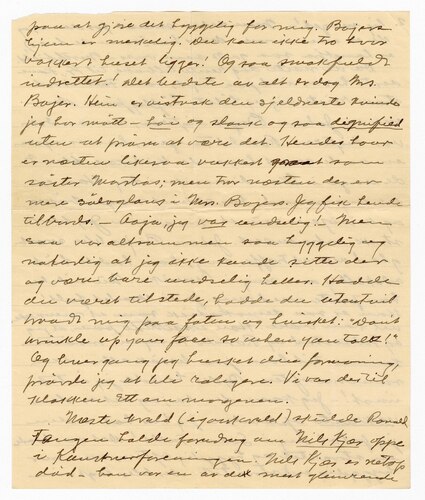 paa at gjøre det hyggelig for mig. Bojers
hjem er merkelig. Du kan ikke tro hvor
vakkert huset ligger! Og saa smakfuldt
indrettet! Det bedste av alt er dog Mrs.
Bojer. Hun er vistnok den sjeldneste kvinde
jeg har møtt – høi og slank og saa dignified
uten at prøve at være det. Hendes haar
er næsten likesaa vakkert graat som
søster Marthas; men tror næsten der er
mere sølvglans i Mrs. Bojers. Jeg fik hende
tilbords. – Aaja, jeg var uendselig! Men
saa var altsammen saa hyggelig og
naturlig at jeg ikke kunde sitte der
og være bare uendselig heller. Hadde
du været tilstede, hadde du utentvil
traadt mig paa foten og hvisket: "Don't
wrinkle up your face so when you talk!"
Og hver gang jeg husket din formaning,
prøvde jeg at bli roligere. Vi var der til
klokken Ett om morgenen.
Næste kveld (igaarkveld) skulde Ronald
Fangen holde foredrag om Nils Kjær oppe
i Kunstnerforeningen. Nils Kjær er netop
død – han var en av de mest glimrende